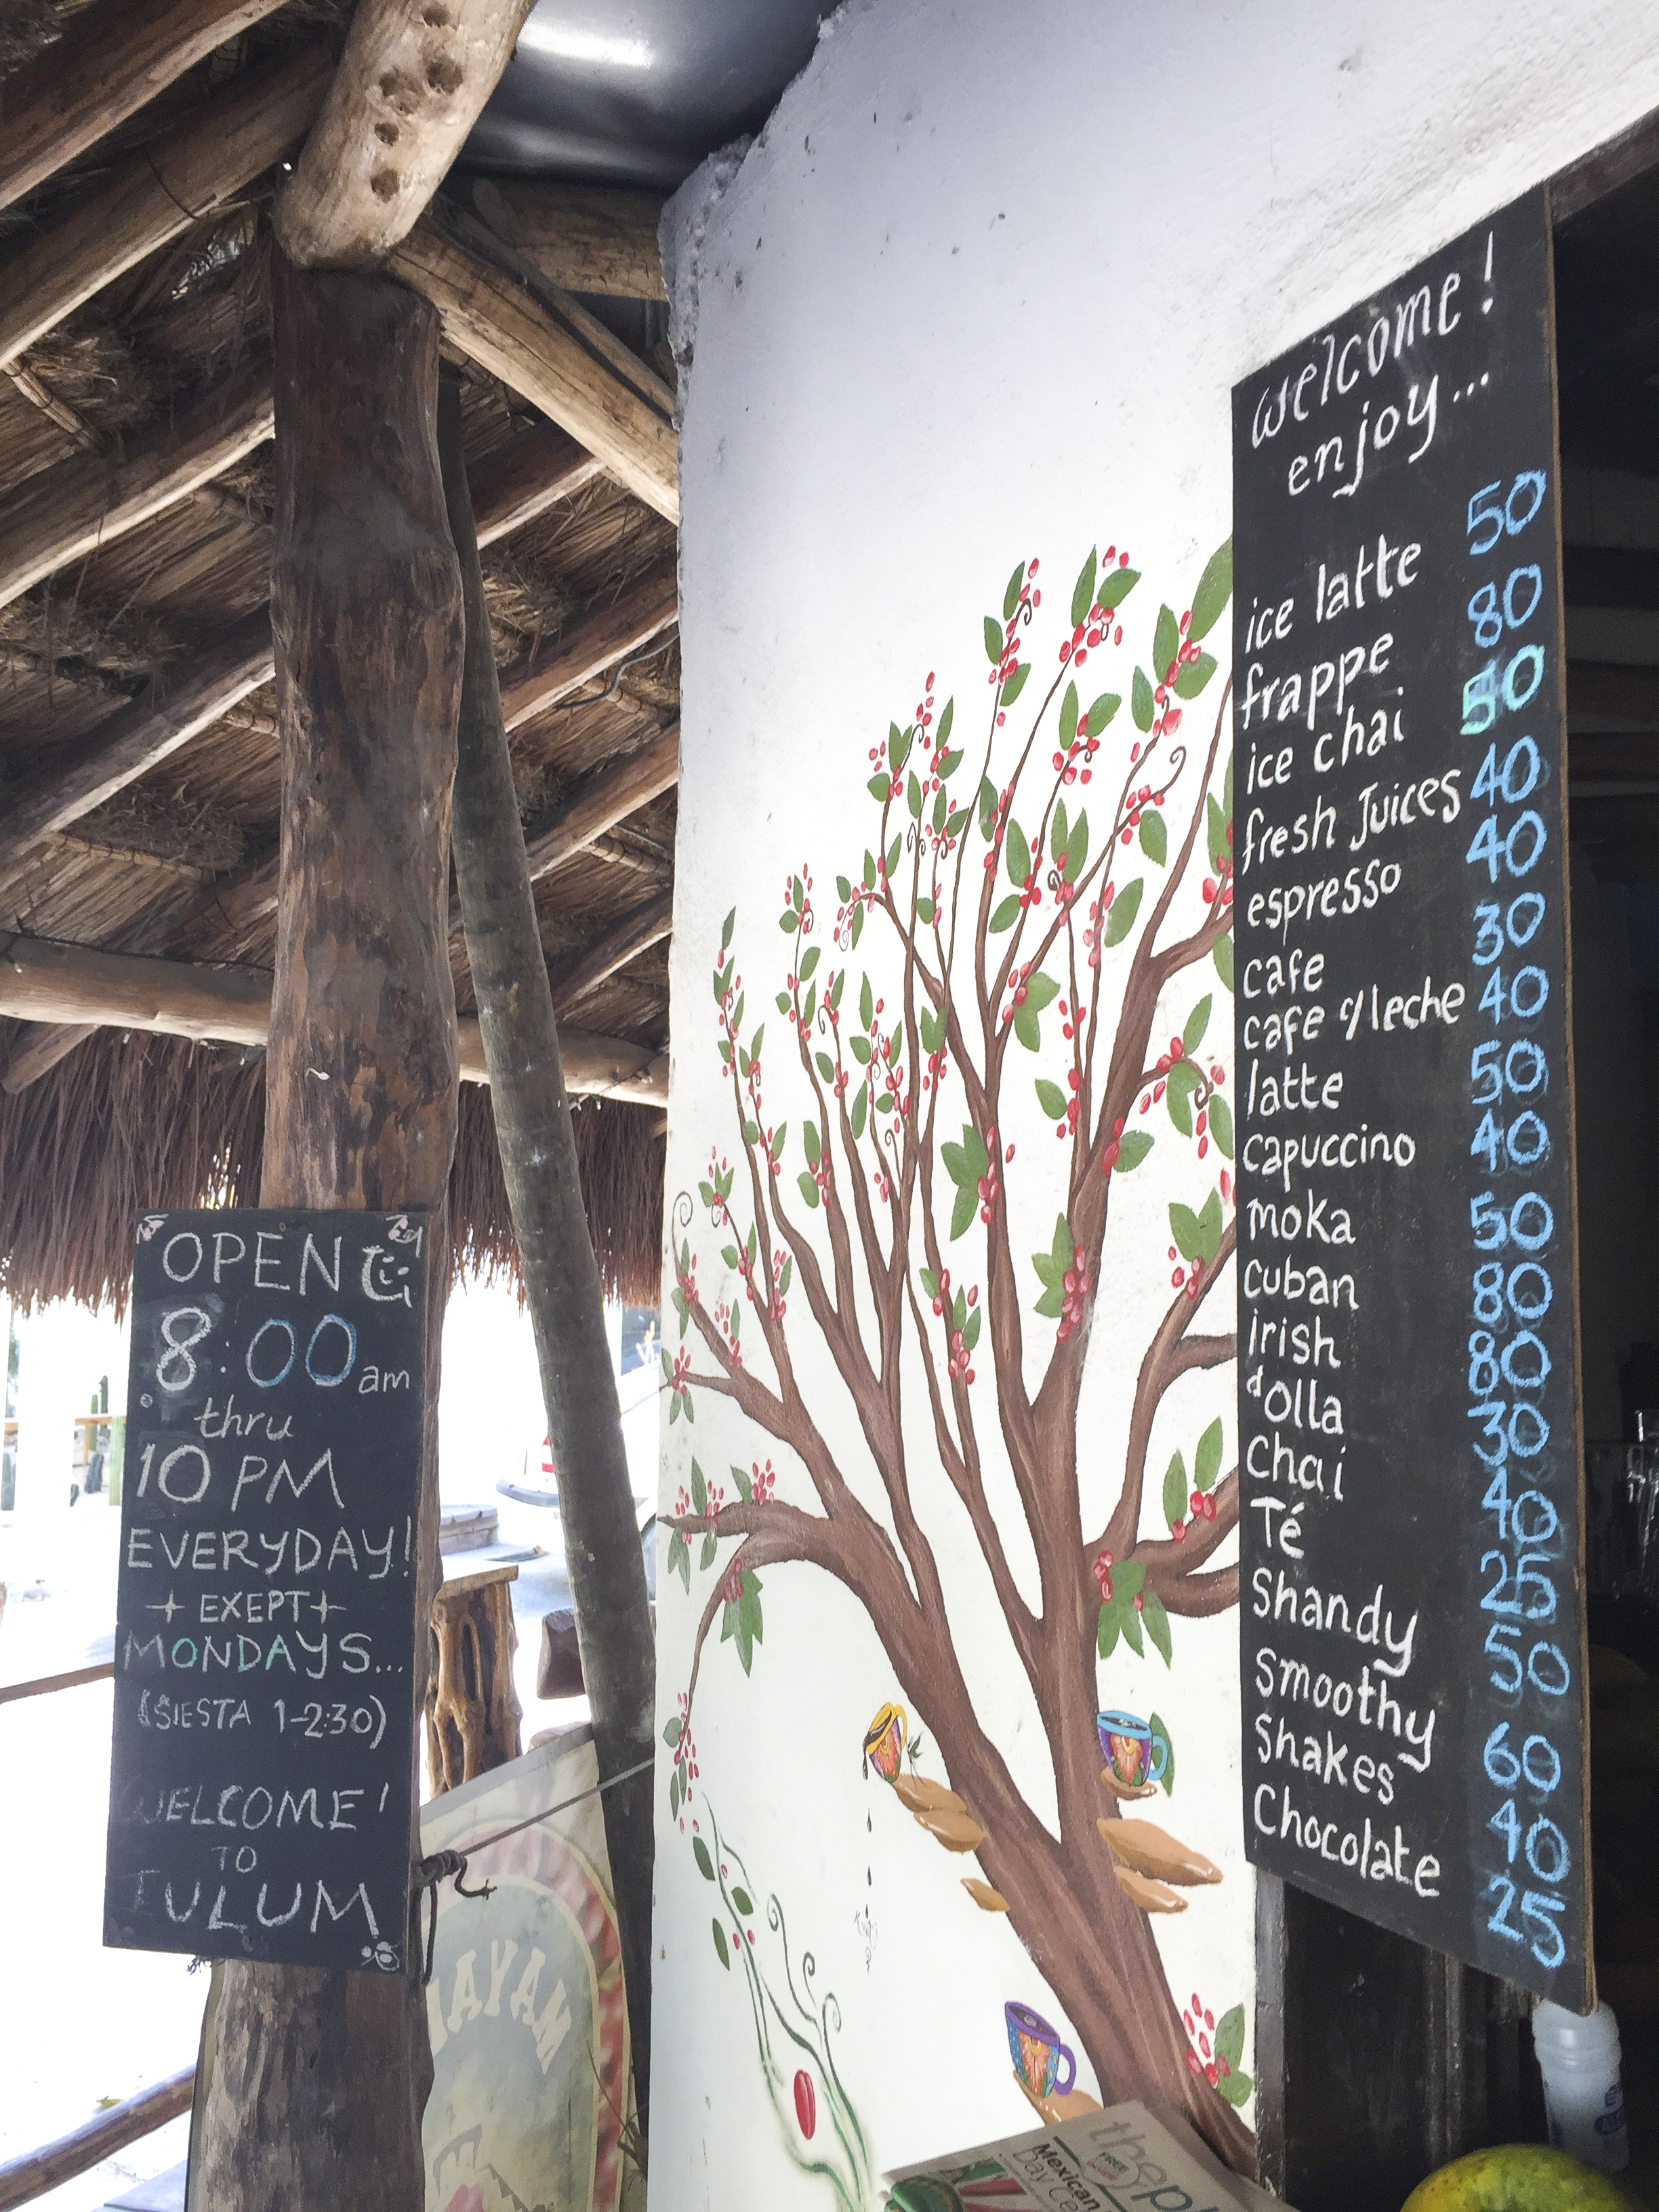 OPEN
8:00 am
thru
10 PM
EVERYDAY!
EXEPT
MONDAYS...
(SIESTA 1-2:30)
WELCOME!
TO
TULUM
welcome!
enjoy...
ice latte 50
frappe 80
ice chai 50
fresh Juices 40
espresso 40
cafe 30
cafe c/leche 40
latte 50
capuccino 40
moka 50
cuban 80
irish 80
d'olla 30
Chai 40
Té 25
Shandy 50
smoothy 60
Shakes 40
Chocolate 25
MAYAN
the
FREE
Mexican